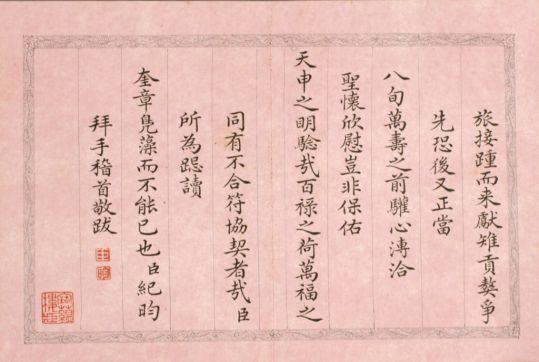 旅接踵而来獻雉貢獒爭
先恐後又正當
八旬萬壽之前驩心溥洽
聖懷欣慰豈非保佑
天申之明驗哉百祿之荷萬福之
同有不合符協契者哉臣
所為跽讀
奎章鳧藻而不能已也臣紀昀
拜手稽首敬跋